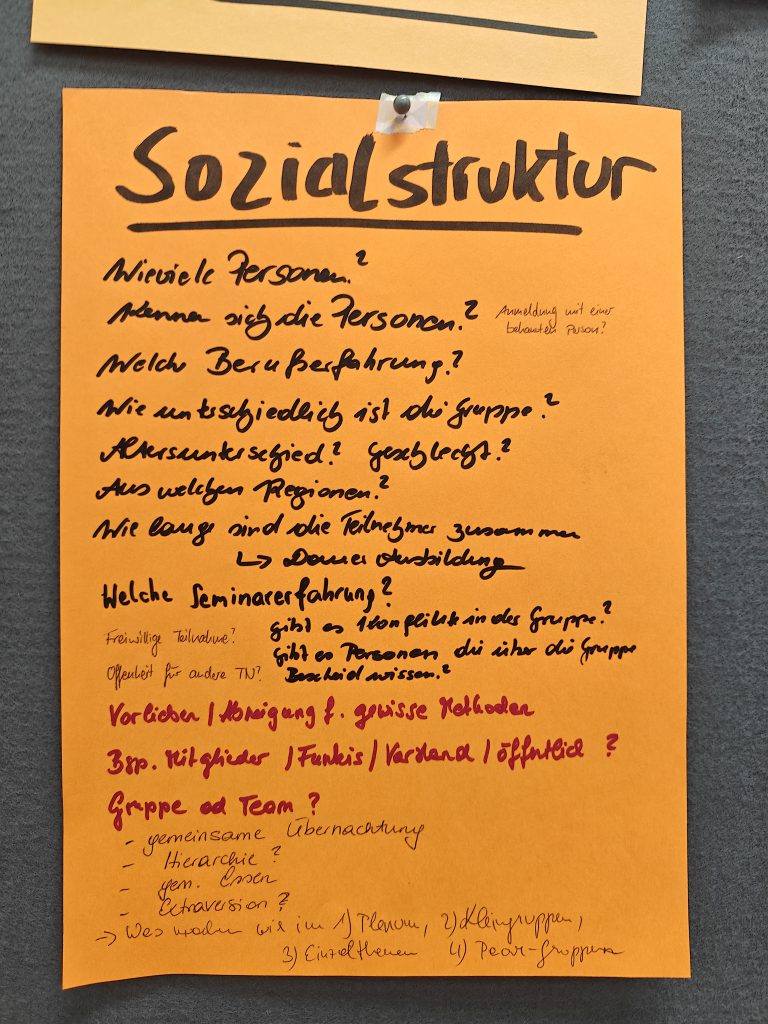 Sozialstruktur
Wieviele Personen?
Kennen sich die Personen?
Anmeldung mit einer
bekannten Person?
Welche Berufserfahrung?
Wie unterschiedlich ist die Gruppe?
Altersunterschied? Geschlecht?
Aus welchen Regionen?
Wie lange sind die Teilnehmer zusammen
↳ Dauer Ausbildung
Welche Seminarerfahrung?
gibt es Konflikte in der Gruppe?
Freiwillige Teilnahme?
gibt es Personen die über die Gruppe
Bescheid wissen?
Offenheit für andere TN?
Vorlieben / Abneigung f. gewisse Methoden
Bsp. Mitglieder / Funkis / Vorstand / öffentlich ?
Gruppe od Team ?
- gemeinsame Übernachtung
- Hierarchie ?
- gem. Essen
- Extraversion ?
→ Was machen wir im 1) Plenum, 2) Kleingruppen,
3) Einzelthemen 4) Pear-Gruppen